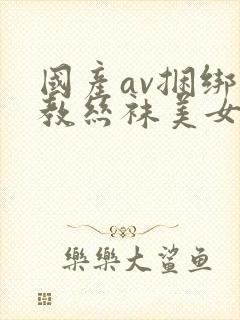 國產av捆绑
教丝袜美女
樂樂大鲨鱼